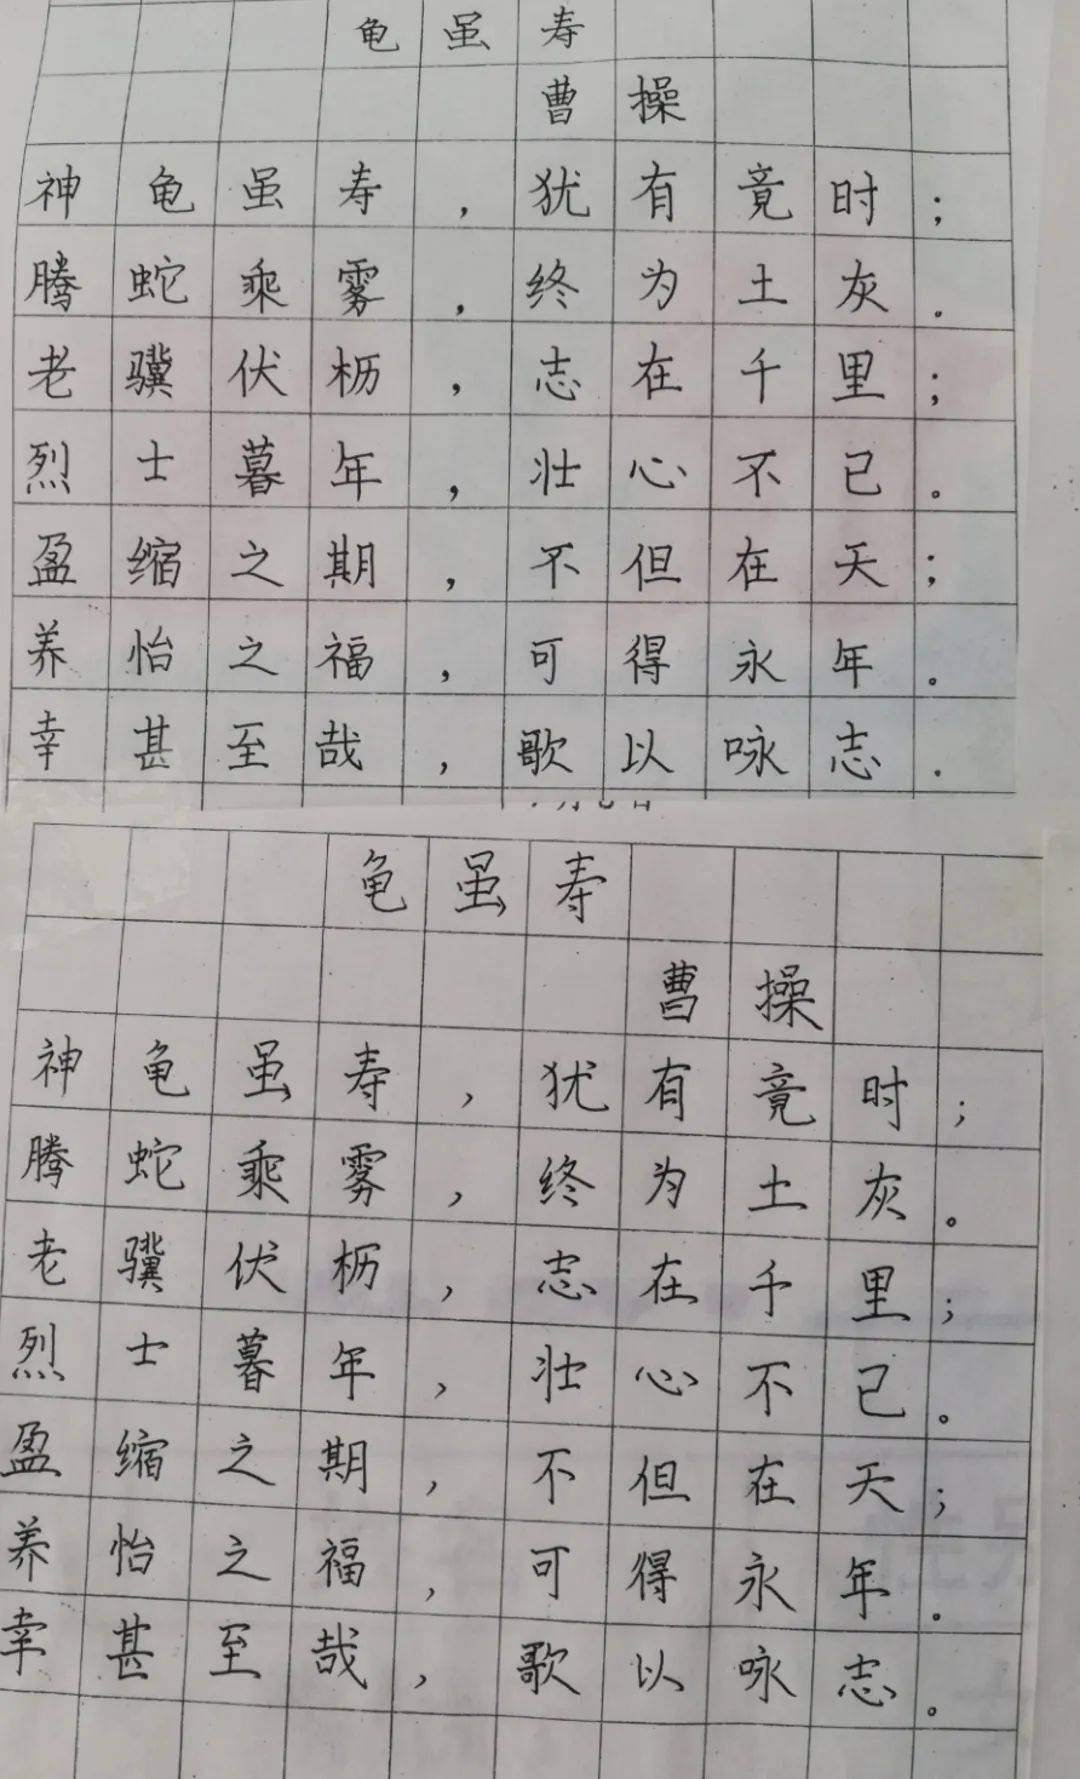 龟虽寿
曹操
神龟虽寿，犹有竟时；
腾蛇乘雾，终为土灰。
老骥伏枥，志在千里；
烈士暮年，壮心不已。
盈缩之期，不但在天；
养怡之福，可得永年。
幸甚至哉，歌以咏志.
龟虽寿
曹操
神龟虽寿，犹有竟时；
腾蛇乘雾，终为土灰。
老骥伏枥，志在千里；
烈士暮年，壮心不已。
盈缩之期，不但在天；
养怡之福，可得永年。
幸甚至哉，歌以咏志。